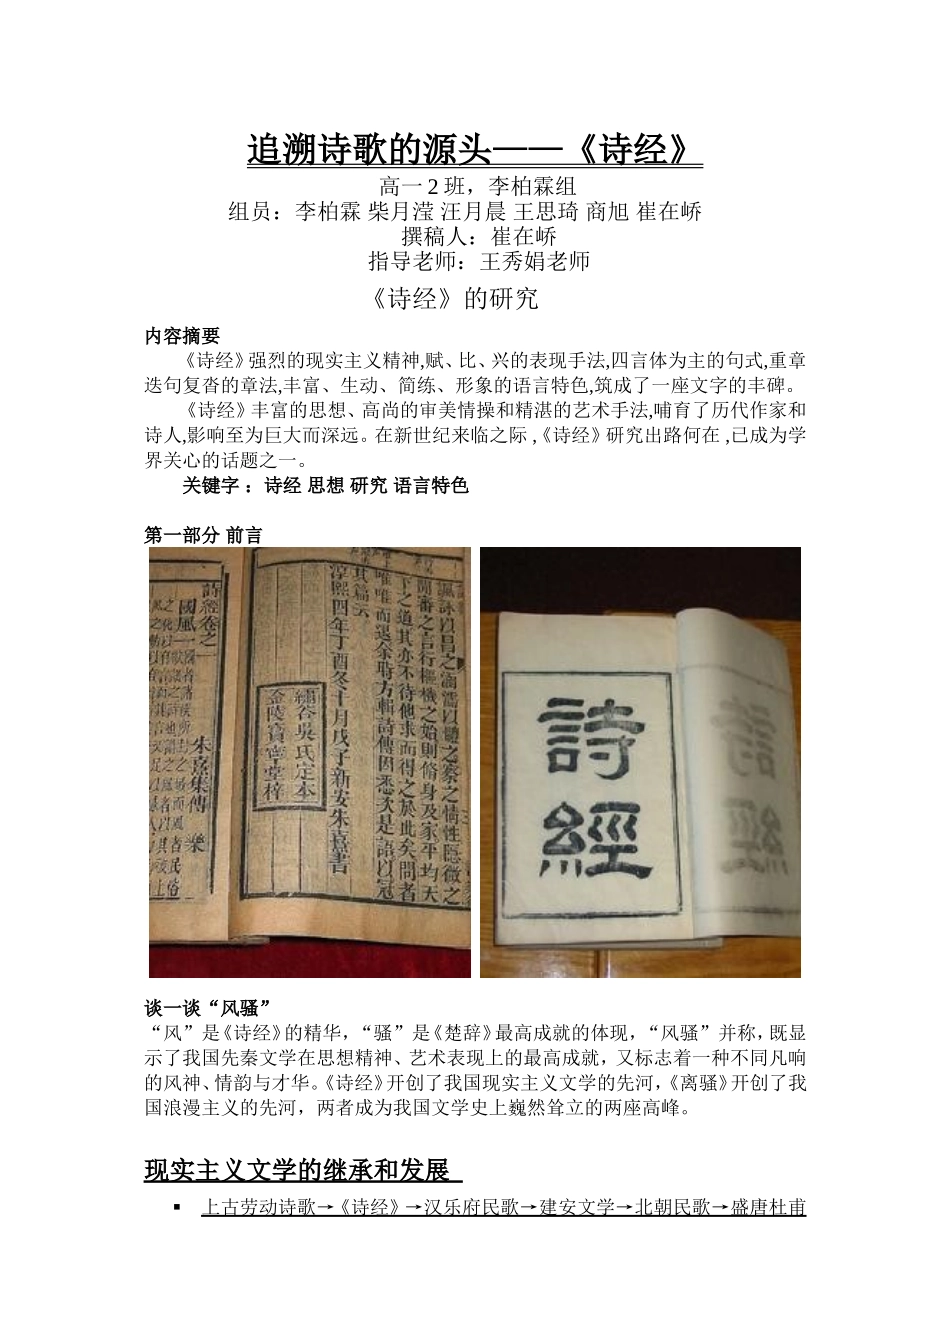 追溯诗歌的源头——《诗经》
高一 2 班，李柏霖组
组员：李柏霖 柴月滢 汪月晨 王思琦 商旭 崔在峤
撰稿人：崔在峤
指导老师：王秀娟老师
《诗经》的研究
内容摘要
《诗经》强烈的现实主义精神,赋、比、兴的表现手法,四言体为主的句式,重章
迭句复沓的章法,丰富、生动、简练、形象的语言特色,筑成了一座文字的丰碑。
《诗经》丰富的思想、高尚的审美情操和精湛的艺术手法,哺育了历代作家和
诗人,影响至为巨大而深远。在新世纪来临之际 ,《诗经》研究出路何在 ,已成为学
界关心的话题之一。
关键字 ：诗经 思想 研究 语言特色
第一部分 前言
諷詠以昌之涵濡以體之察之情性隱微之
間審之言行樞機之始則脩身及家平均天
下之道其亦不待他求而得之於此矣問者
唯唯而退余時方輯詩傳因悉次是語以冠
其篇云
淳熙四年丁酉冬十月戊子新安朱熹書
繡谷吳氏定本
金陵寶
堂梓
詩經卷之一
國風一
朱熹集傳
詩
經
谈一谈“风骚”
“风”是《诗经》的精华，“骚”是《楚辞》最高成就的体现，“风骚”并称，既显
示了我国先秦文学在思想精神、艺术表现上的最高成就，又标志着一种不同凡响
的风神、情韵与才华。《诗经》开创了我国现实主义文学的先河，《离骚》开创了我
国浪漫主义的先河，两者成为我国文学史上巍然耸立的两座高峰。
现实主义文学的继承和发展
▪ 上古劳动诗歌→《诗经》→汉乐府民歌→建安文学→北朝民歌→盛唐杜甫